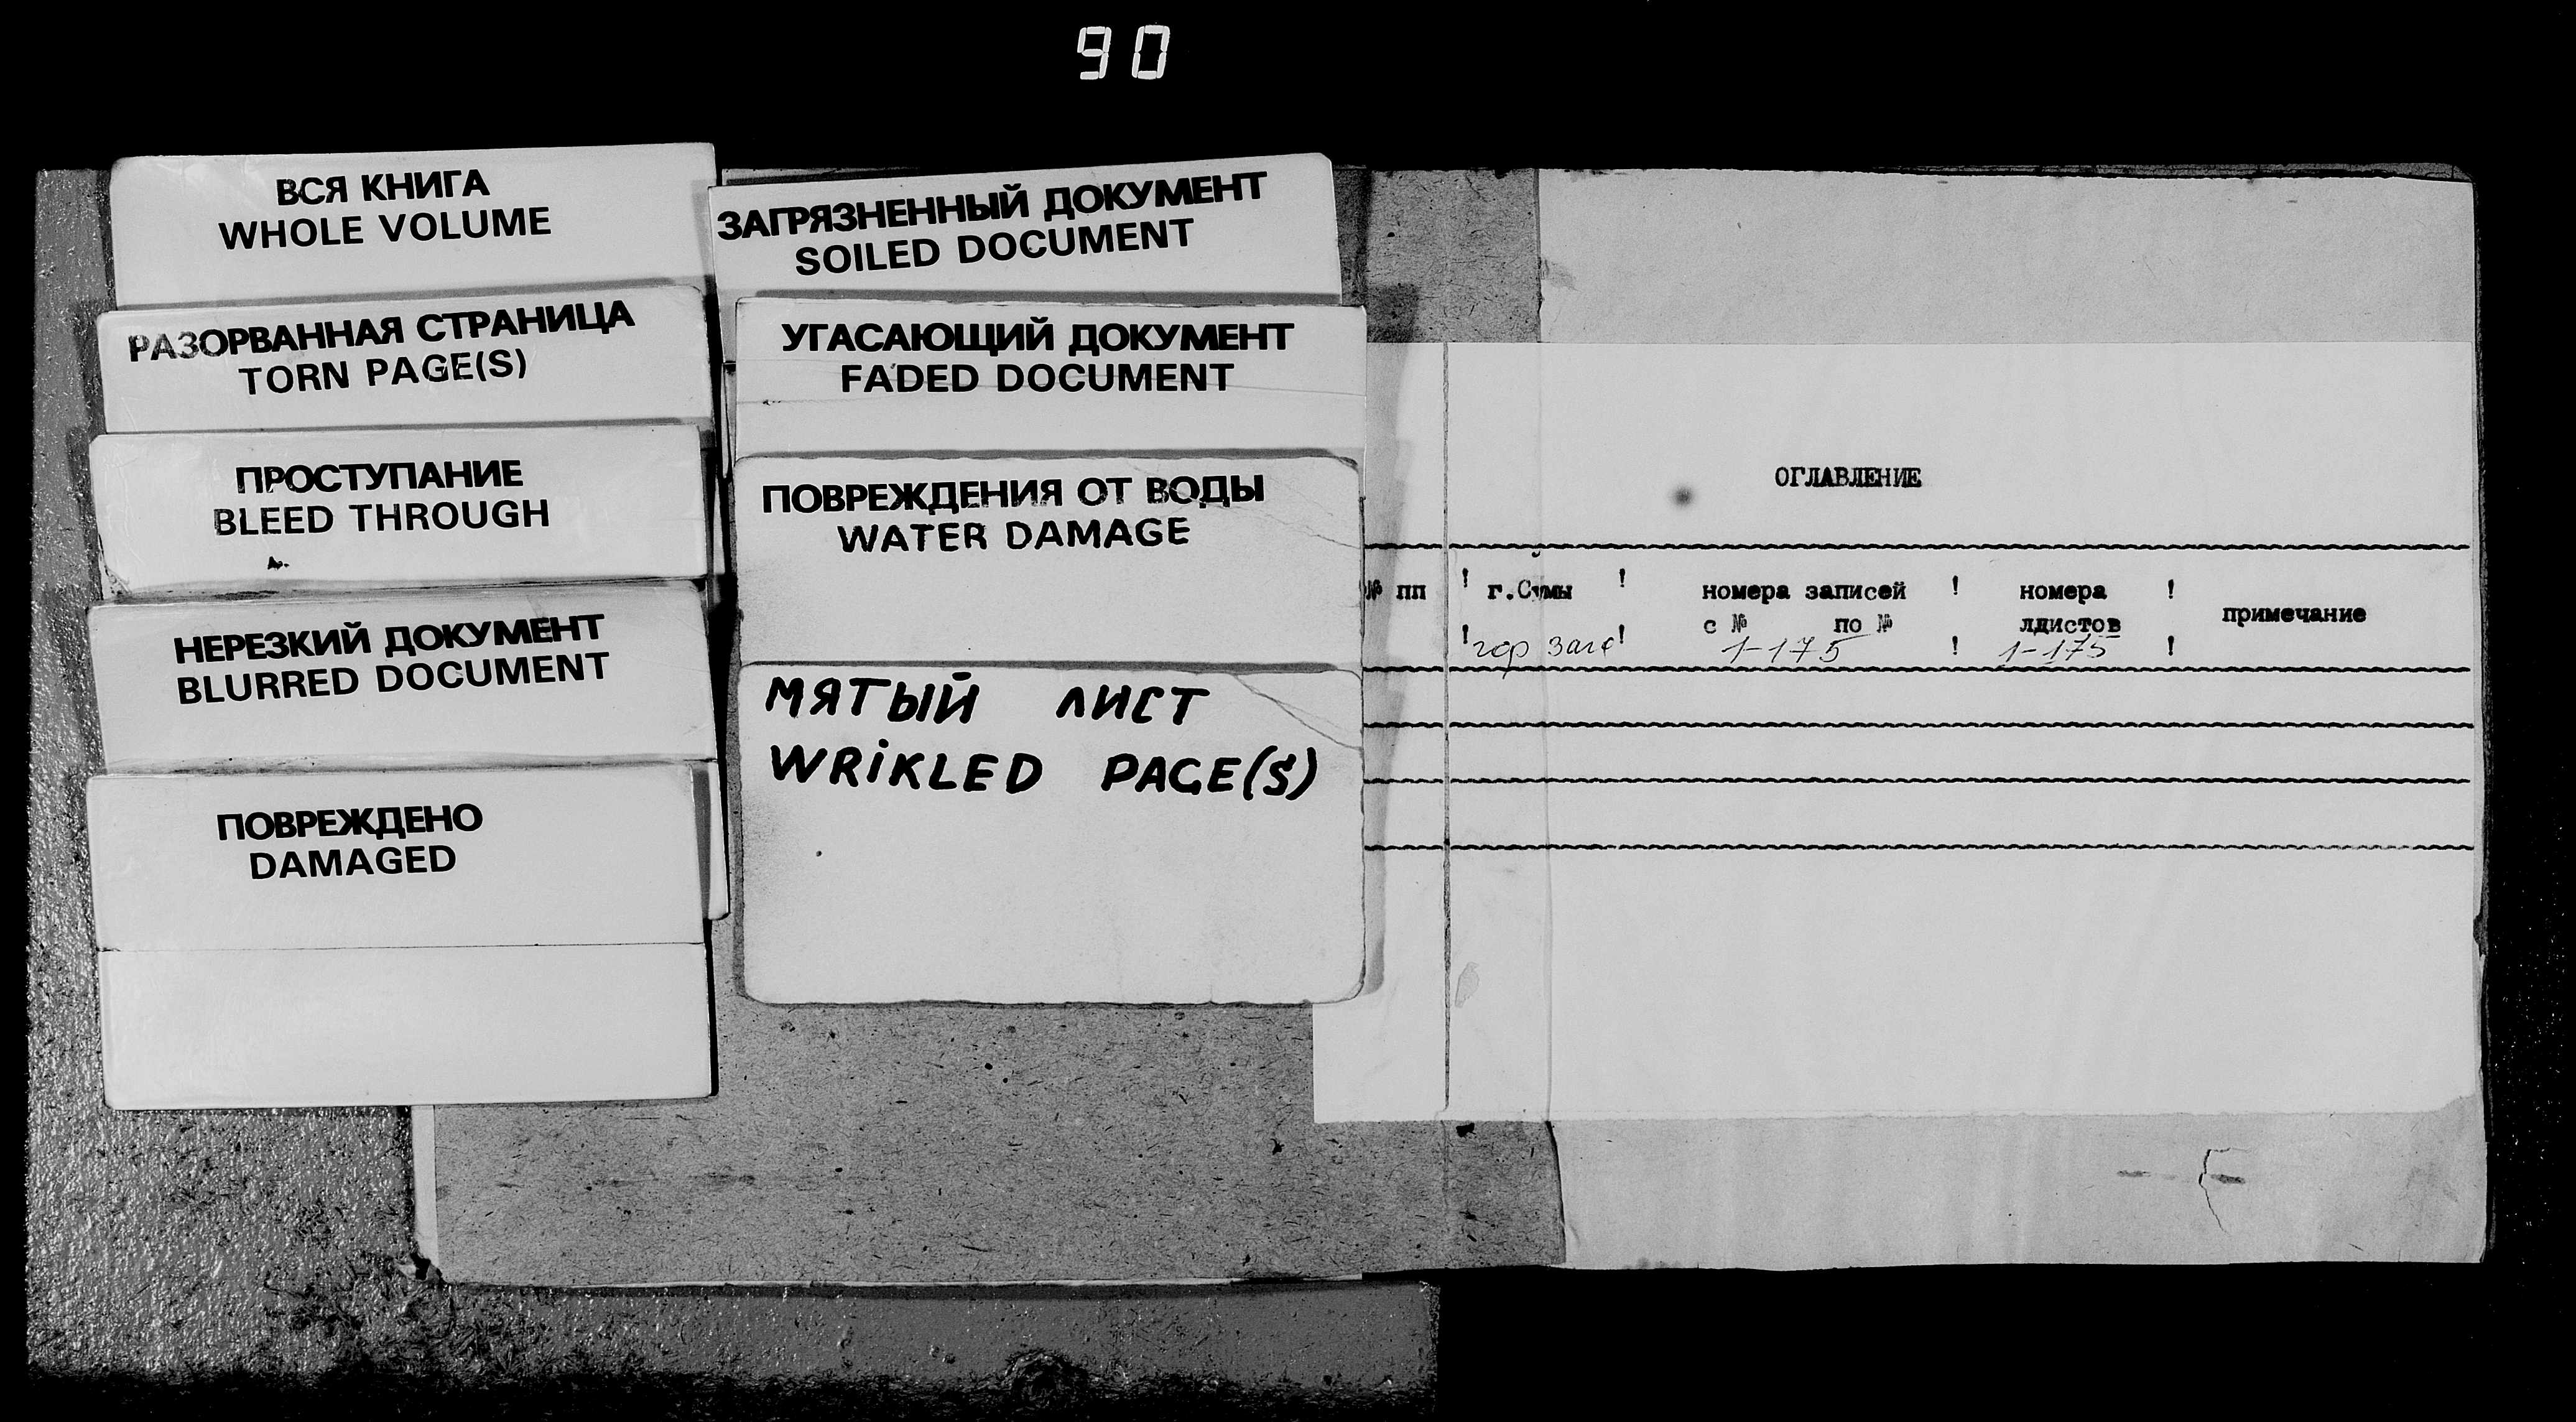 90
ВСЯ КНИГА
WHOLE VOLUME
РАЗОРВАННАЯ СТРАНИЦА
TORN PAGE(S)
ПРОСТУПАНИЕ
BLEED THROUGH
НЕРЕЗКИЙ ДОКУМЕНТ
BLURRED DOCUMENT
ПОВРЕЖДЕНО
DAMAGED
ЗАГРЯЗНЕННЫЙ ДОКУМЕНТ
SOILED DOCUMENT
УГАСАЮЩИЙ ДОКУМЕНТ
FADED DOCUMENT
ПОВРЕЖДЕНИЯ ОТ ВОДЫ
WATER DAMAGE
МЯТЫЙ ЛИСТ
WRiKLED PAGE(S)
ОГЛАВЛЕНИЕ
№ пп ! г.Сумы ! номера записей ! номера !
примечание
с № по № лдистов
! гор загс ! 1-175 ! 1-175 !